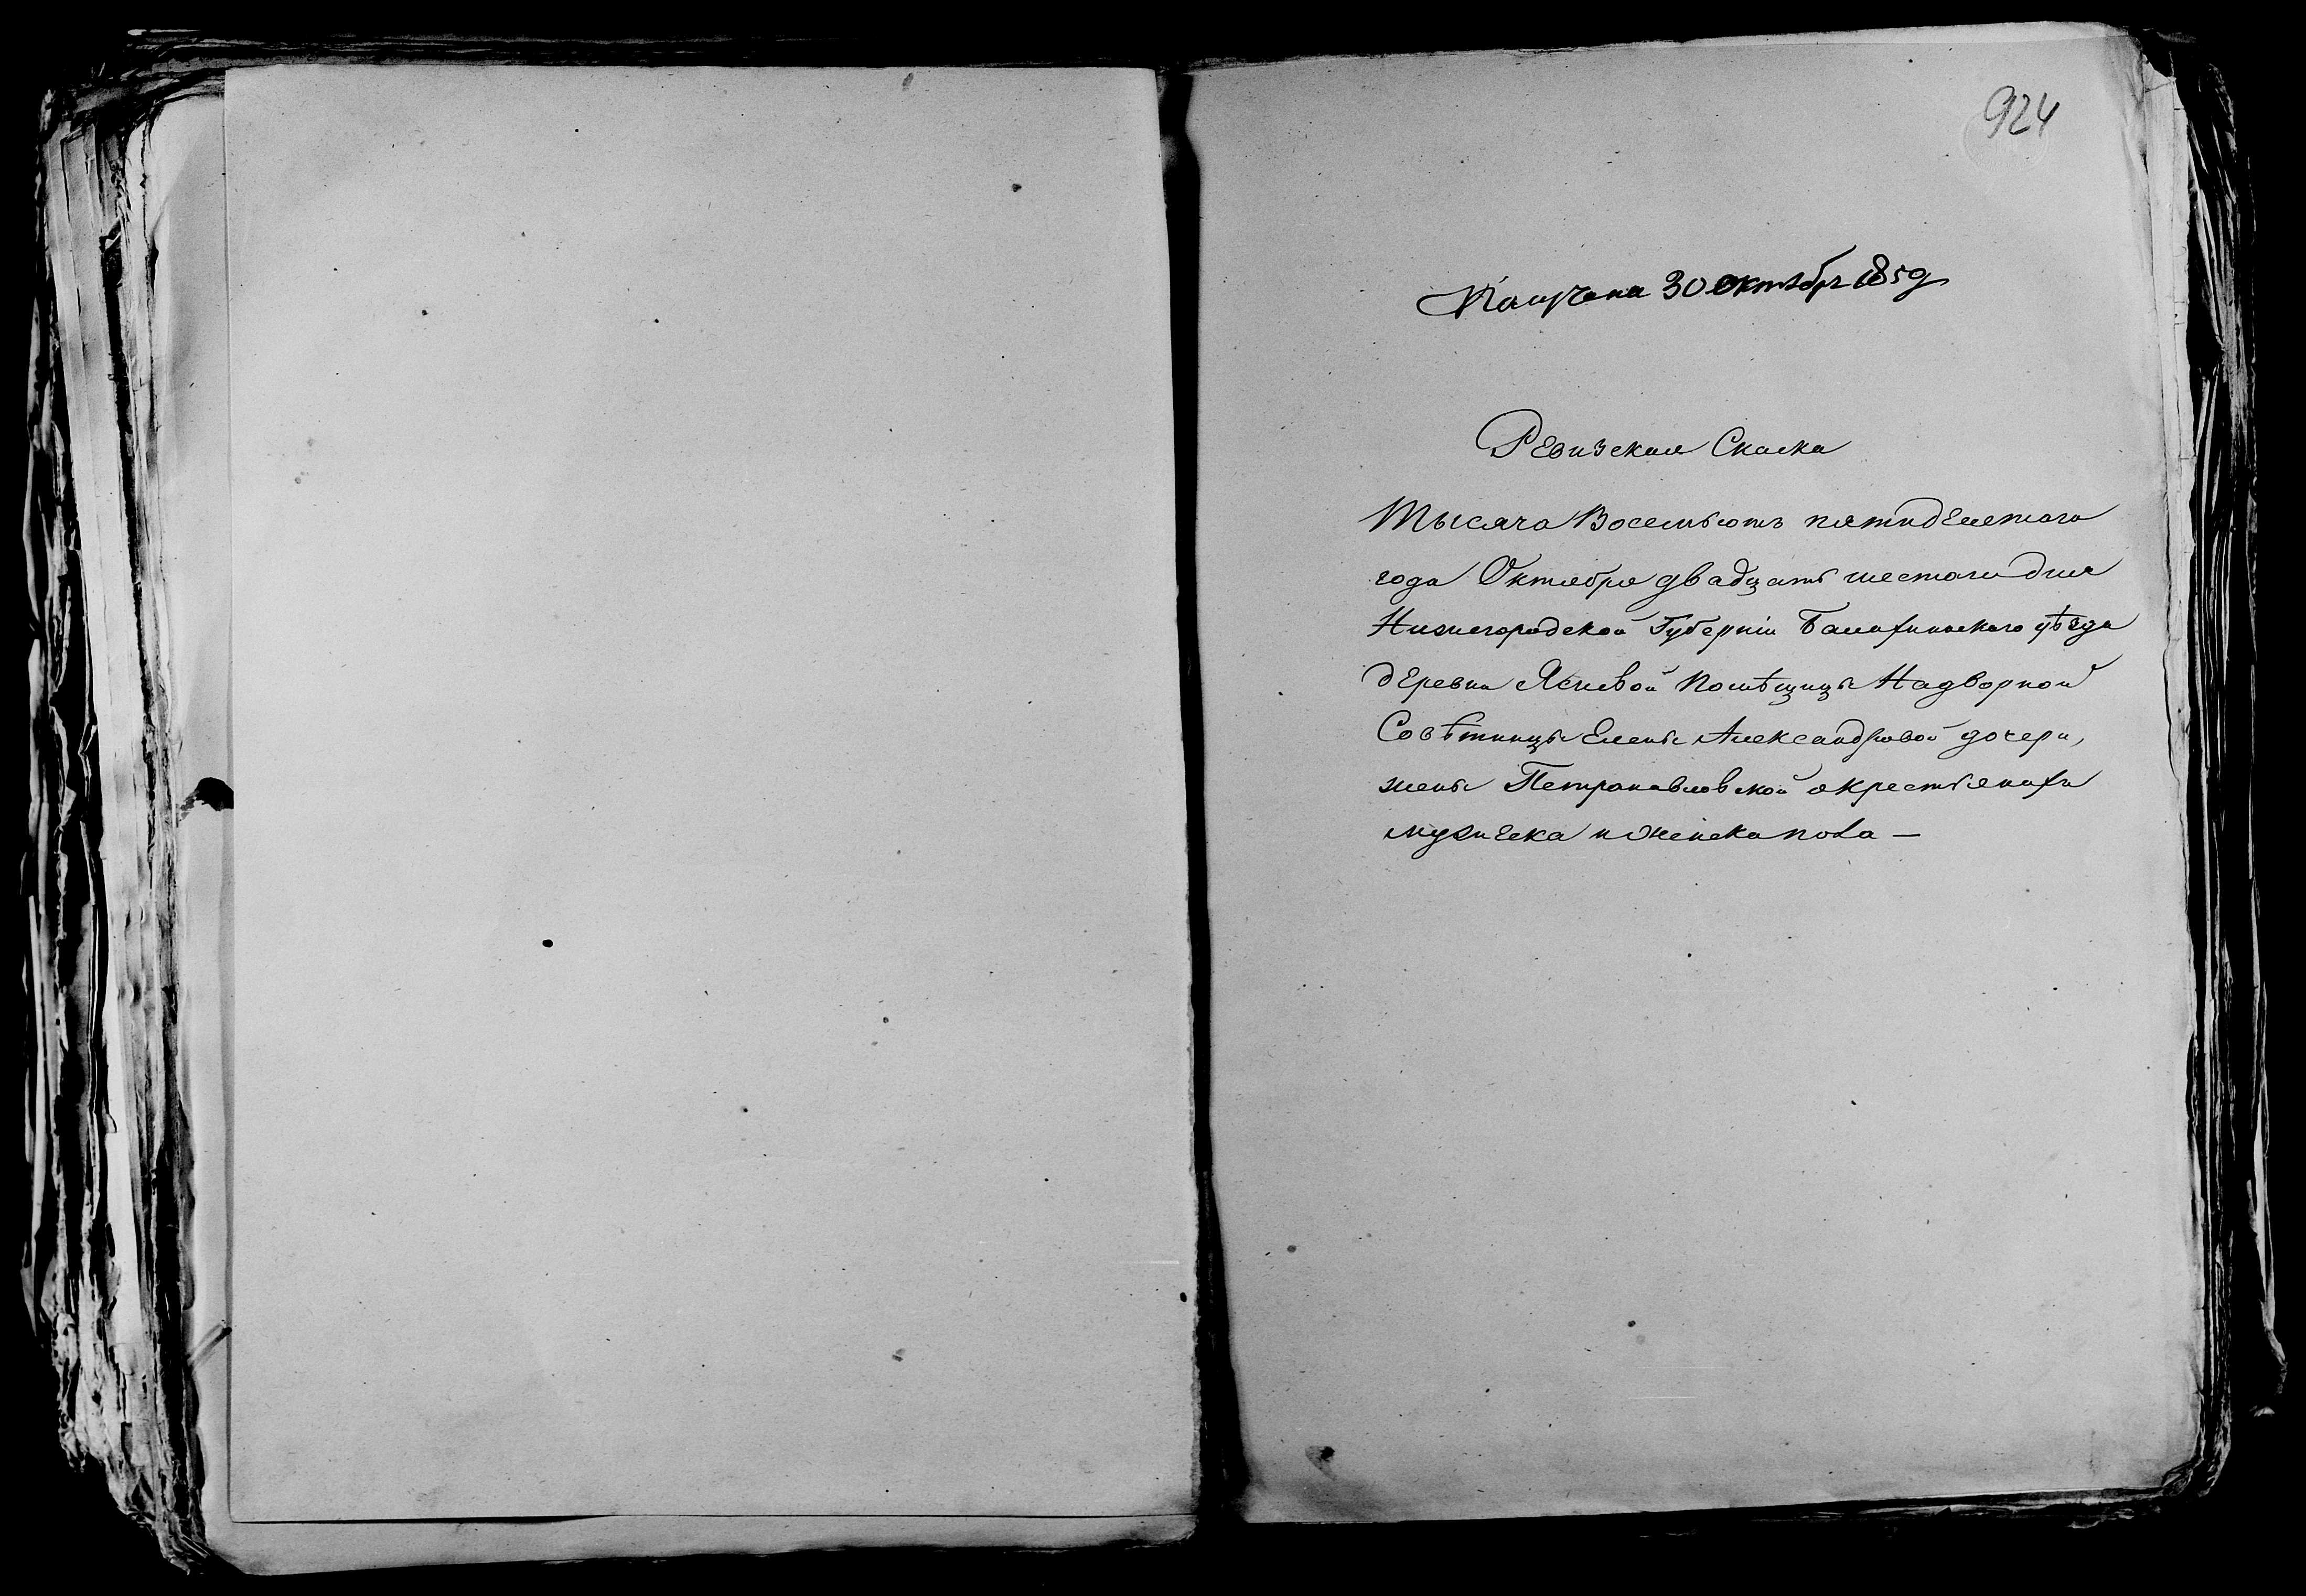 924
Получена 30 октября 1850
Ревизская Сказка
Тысяча Восемьсотъ пятидесятаго
года Октября двадцать шестаго дня
Нижегородской Губерніи Балахинскаго уѣзда
деревни Ясневой помѣщицы Надворной
Совѣтницы Елены Александровой дочери,
жены Петрапавловской о крестьянахъ
мужеска и женска пола —